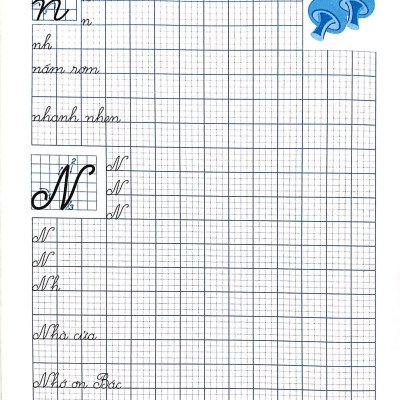 n
n
n
nh
nấm rơm
nhanh nhẹn
N
N
N
N
N
N
Nh
Nhà cửa
Nhớ ơn Bác